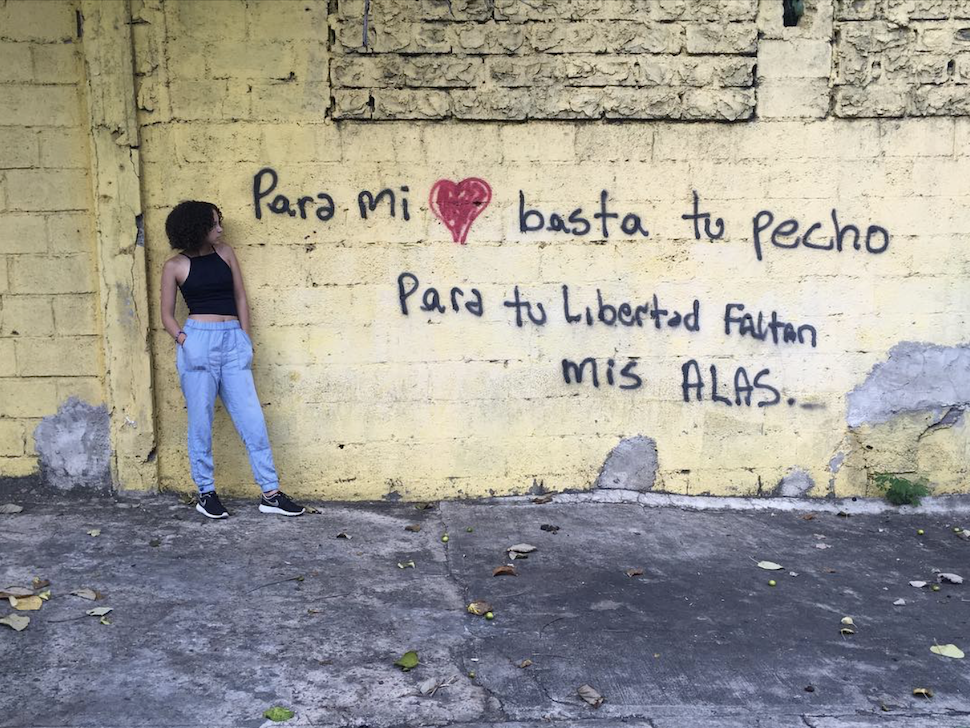 Para mi ❤ basta tu pecho
Para tu Libertad Faltan
mis ALAS.